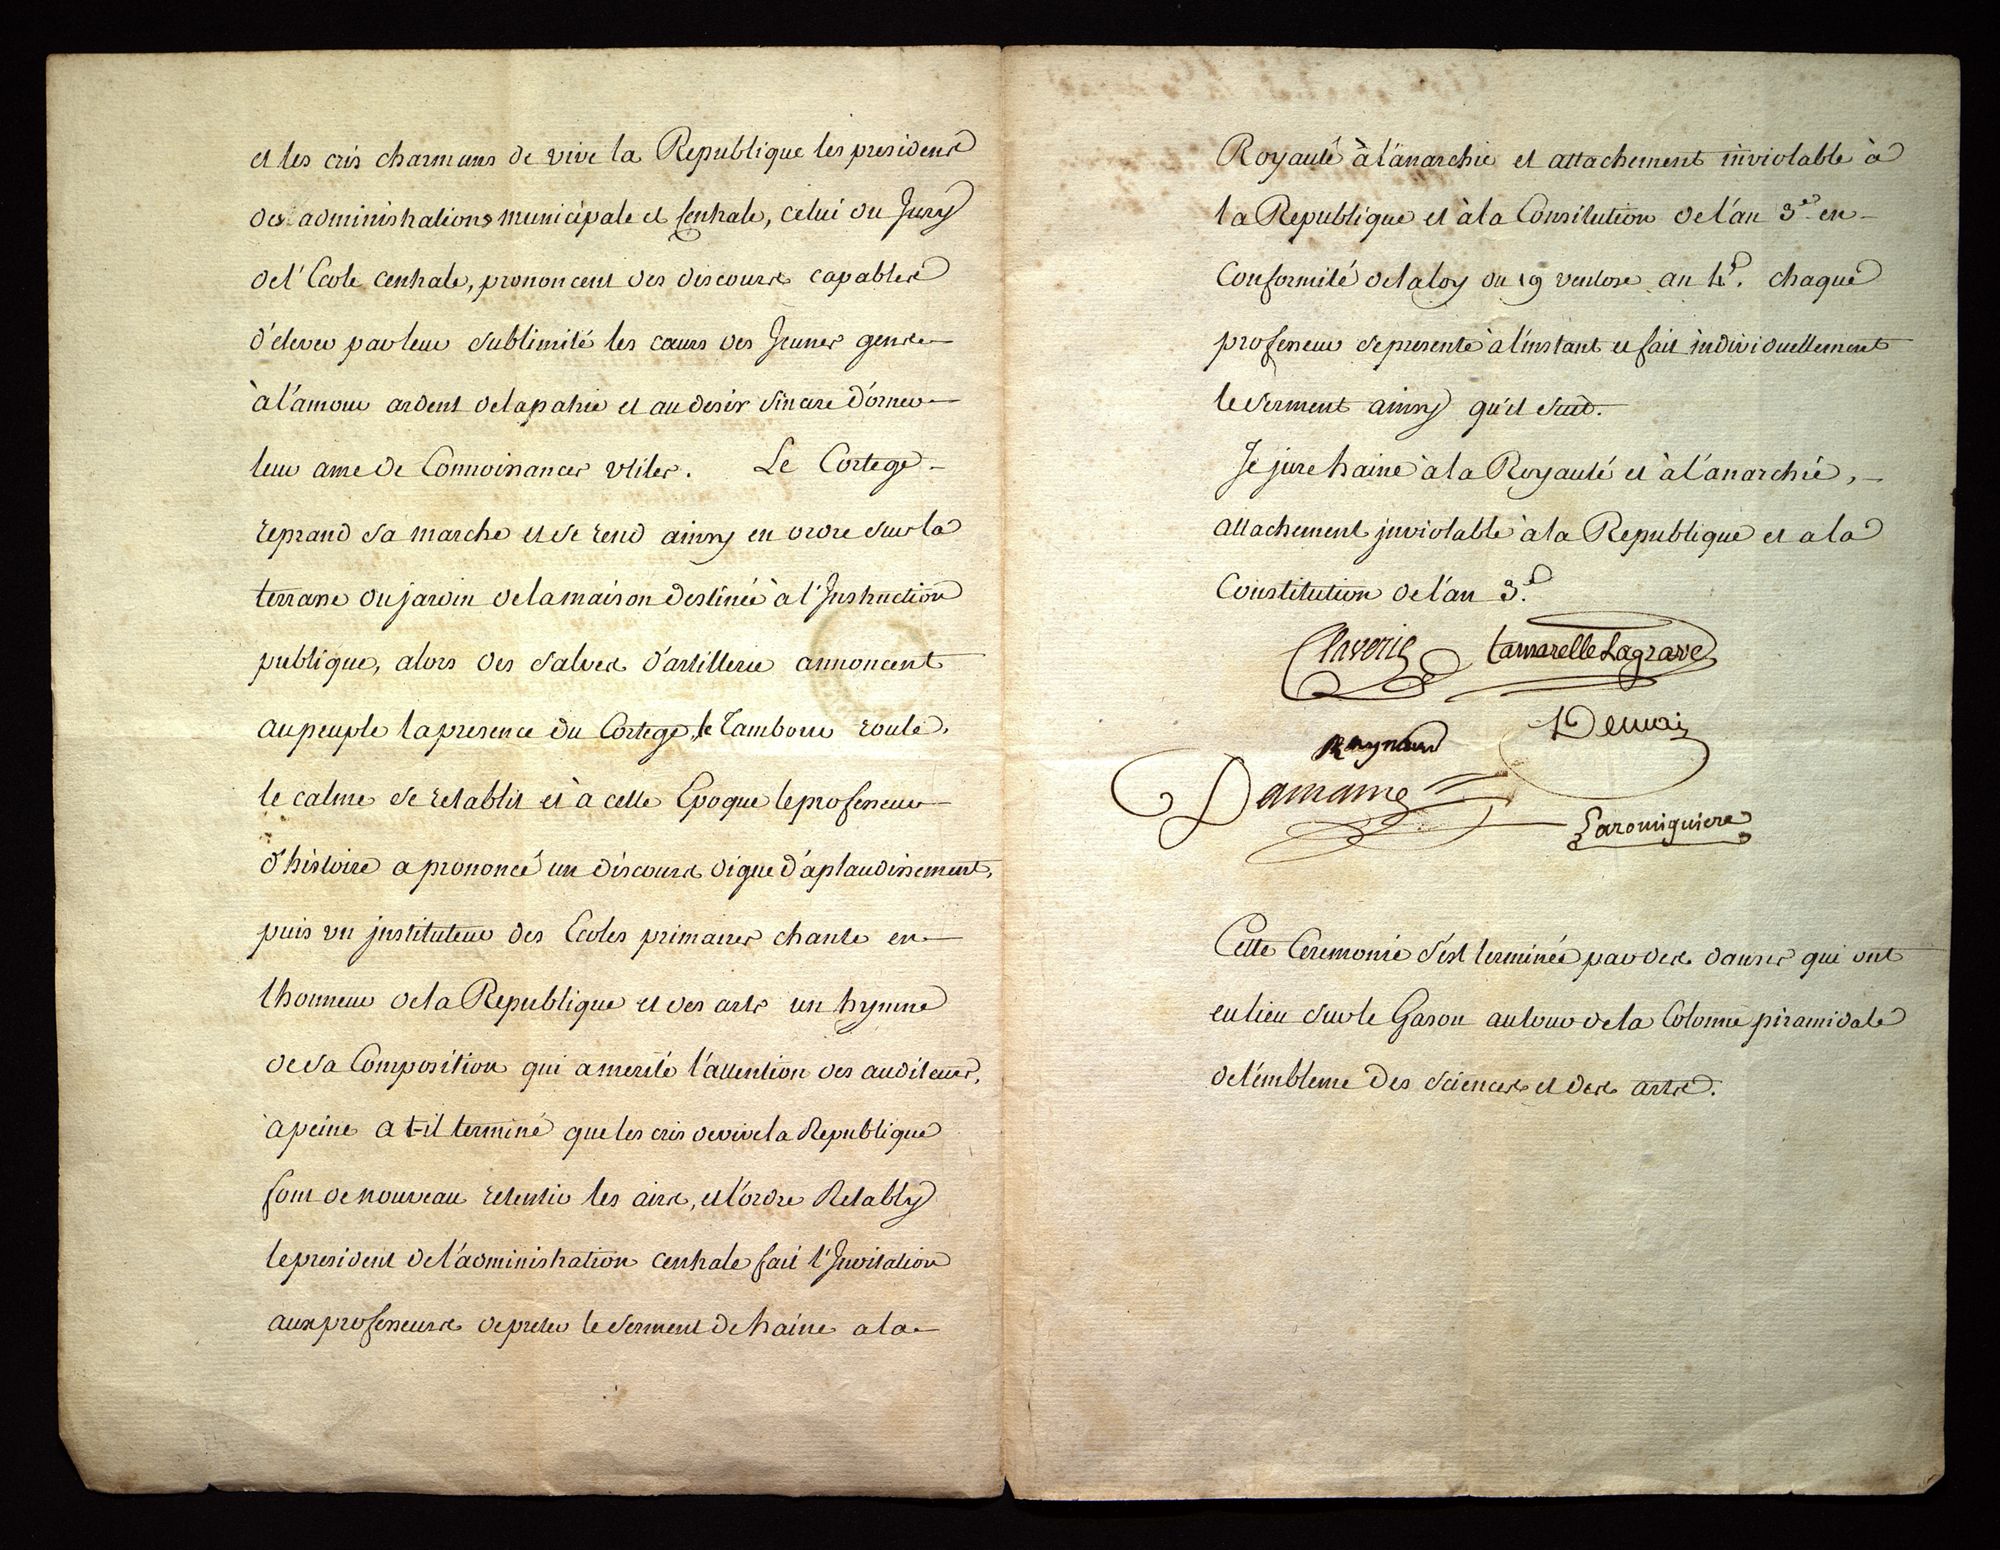 et les cris charmans de vive la Republique les presidens
des administrations municipale et Centrale, celui du Jury
de l'Ecole centrale, prononcent des discours capables
d'elever par leur sublimité les cœurs des Jeunes gens
à l'amour ardent de la patrie et au desir sincere d'orner
leur ame de Connoissances utiles. Le Cortege
reprand sa marche et se rend ainsy en ordre sur la
terrasse du jardin de la maison destinée à l'Instruction
publique, alors des salves d'artillerie annoncent
au peuple la presence du Cortege, le Tambour roule,
le calme se retablit et à cette Epoque le professeur
d'histoire a prononcé un discours digne d'aplaudissement,
puis un jnstituteur des Ecoles primaires chante en
l'honneur de la Republique et des arts un hymne
de sa Composition qui a merité l'attention des auditeurs,
a peine a t-il terminé que les cris de vive la Republique
font de nouveau retentir les airs, et l'ordre Retably
le president de l'administration centrale fait l'Invitation
aux professeurs de preter le serment de haine a la
Royauté à l'anarchie et attachement inviolable à
la Republique et à la Consitution de l'an 3e en
Conformité de la loy du 19 ventose an 4e. chaque
professeur se presente à l'instant et fait individuellement
le serment ainsy qu'il suit.
Je jure haine à la Royauté et à l'anarchie,
attachement jnviolable à la Republique et a la
Constitution de l'an 3e.
Claverie Lamarelle Lagrave
Raynaud Demai
Damame
Laromiguiere
Cette Ceremonie s'est terminée par des danses qui ont
eu lieu sur le Gason autour de la Colonne piramidale
de l'embleme des sciences et des arts.